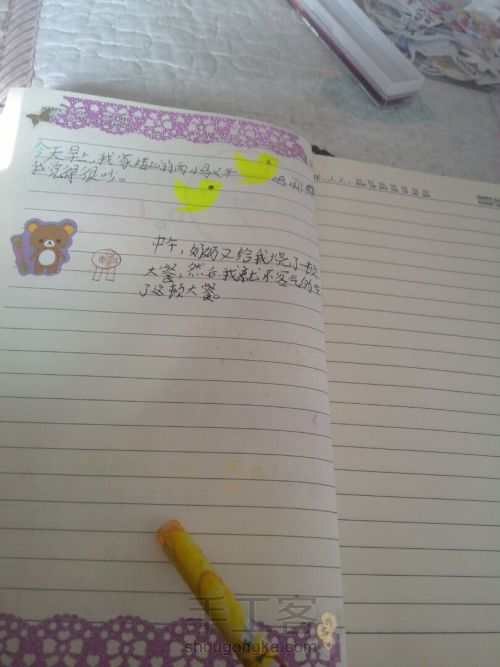 今天早上，我家楼上的两小鸟又开
我觉得很吵。
中午，奶奶又给我烧了一顿
大餐，然后我就不客气的吃
了这顿大餐。
手工客
shougongke.com